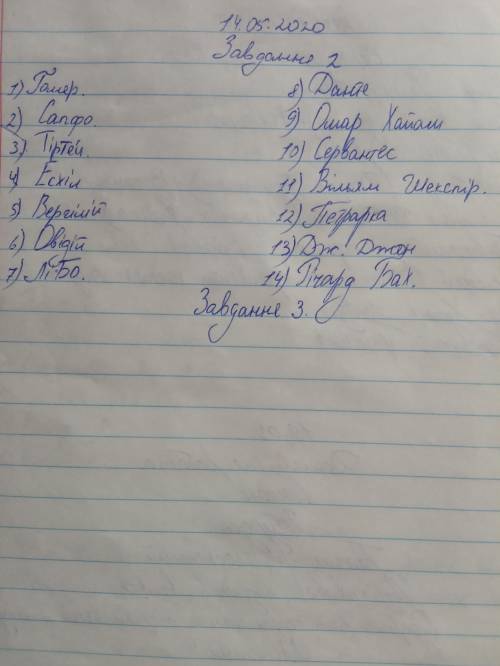 14.05.2020
Завдання 2
1) Гомер.
2) Сапфо.
3) Тіртей.
4) Есхіл
5) Вергілій
6) Овідій
7) Лі Бо.
8) Данте
9) Омар Хайям
10) Сервантес
11) Вільям Шекспір.
12) Петрарка
13) Дж. Джон
14) Річард Бах.
Завдання 3.